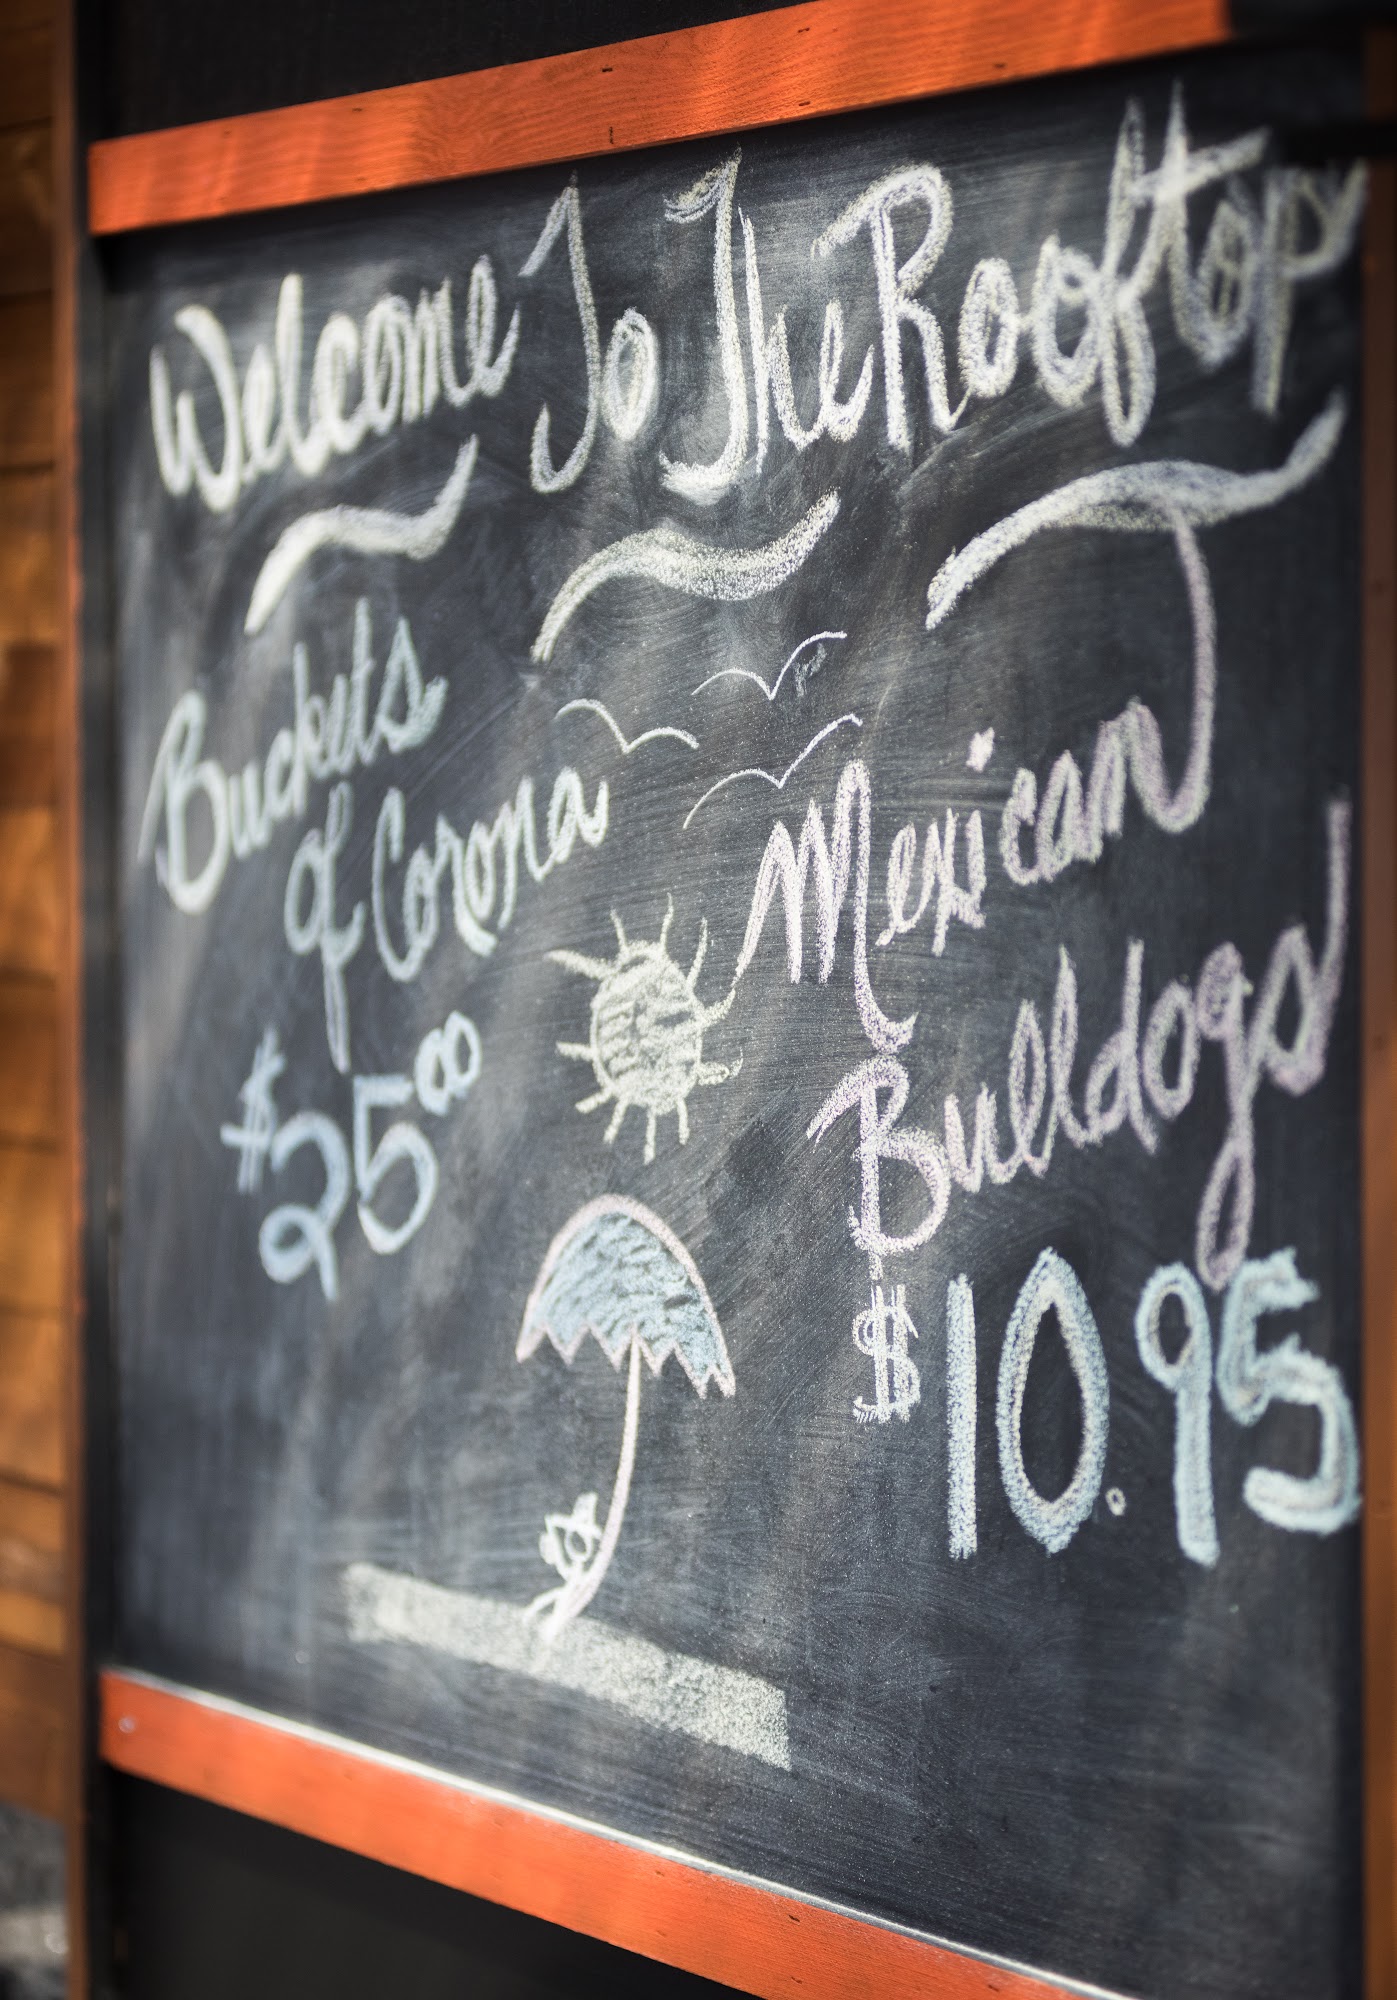 Welcome To The Rooftop
Buckets
of Corona
$25.00
Mexican
Bulldogs
$10.95